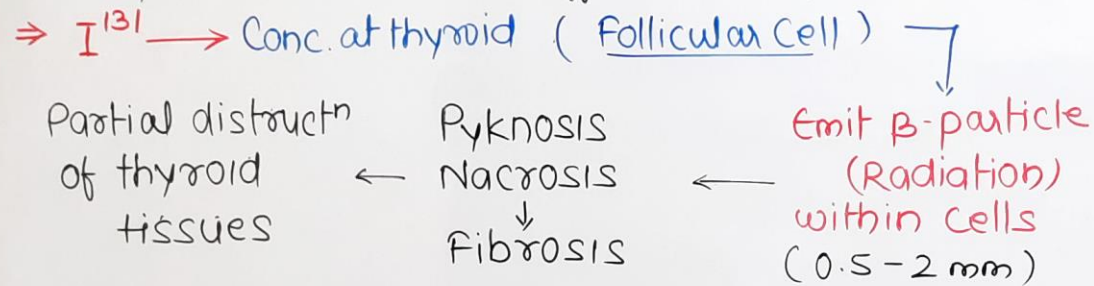 ⇒ I¹³¹ → Conc. at thyroid ( Follicular Cell )
Emit β-particle
(Radiation)
within cells
(0.5 - 2 mm)
Pyknosis
Nacrosis
↓
Fibrosis
←
Partial distructⁿ
of thyroid
tissues
←